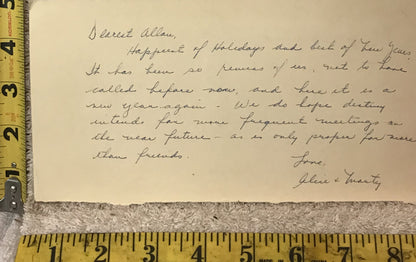 Dearest Allan,
Happiest of Holidays and best of New Years.
It has been so remiss of us, not to have
called before now, and here it is a
new year again - We do hope destiny
intends for more frequent meetings in
the near future - as is only proper for more
than friends.
Love,
Alice & Marty
5
4
3
2
1
1 2 3 4 5 6 7 8